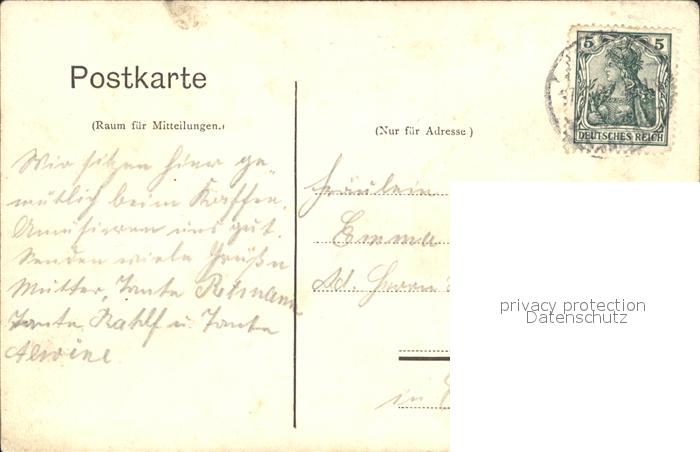 Postkarte
(Raum für Mitteilungen.)
(Nur für Adresse)
5 5
DEUTSCHES REICH
Wir sitzen hier ge-
mütlich beim Kaffee.
Amüsieren uns gut.
Senden viele Grüße
Mutter, Tante
Tante u. Tante
Alwine
Fräulein
Emma
Ad. Herrn
in
privacy protection
Datenschutz